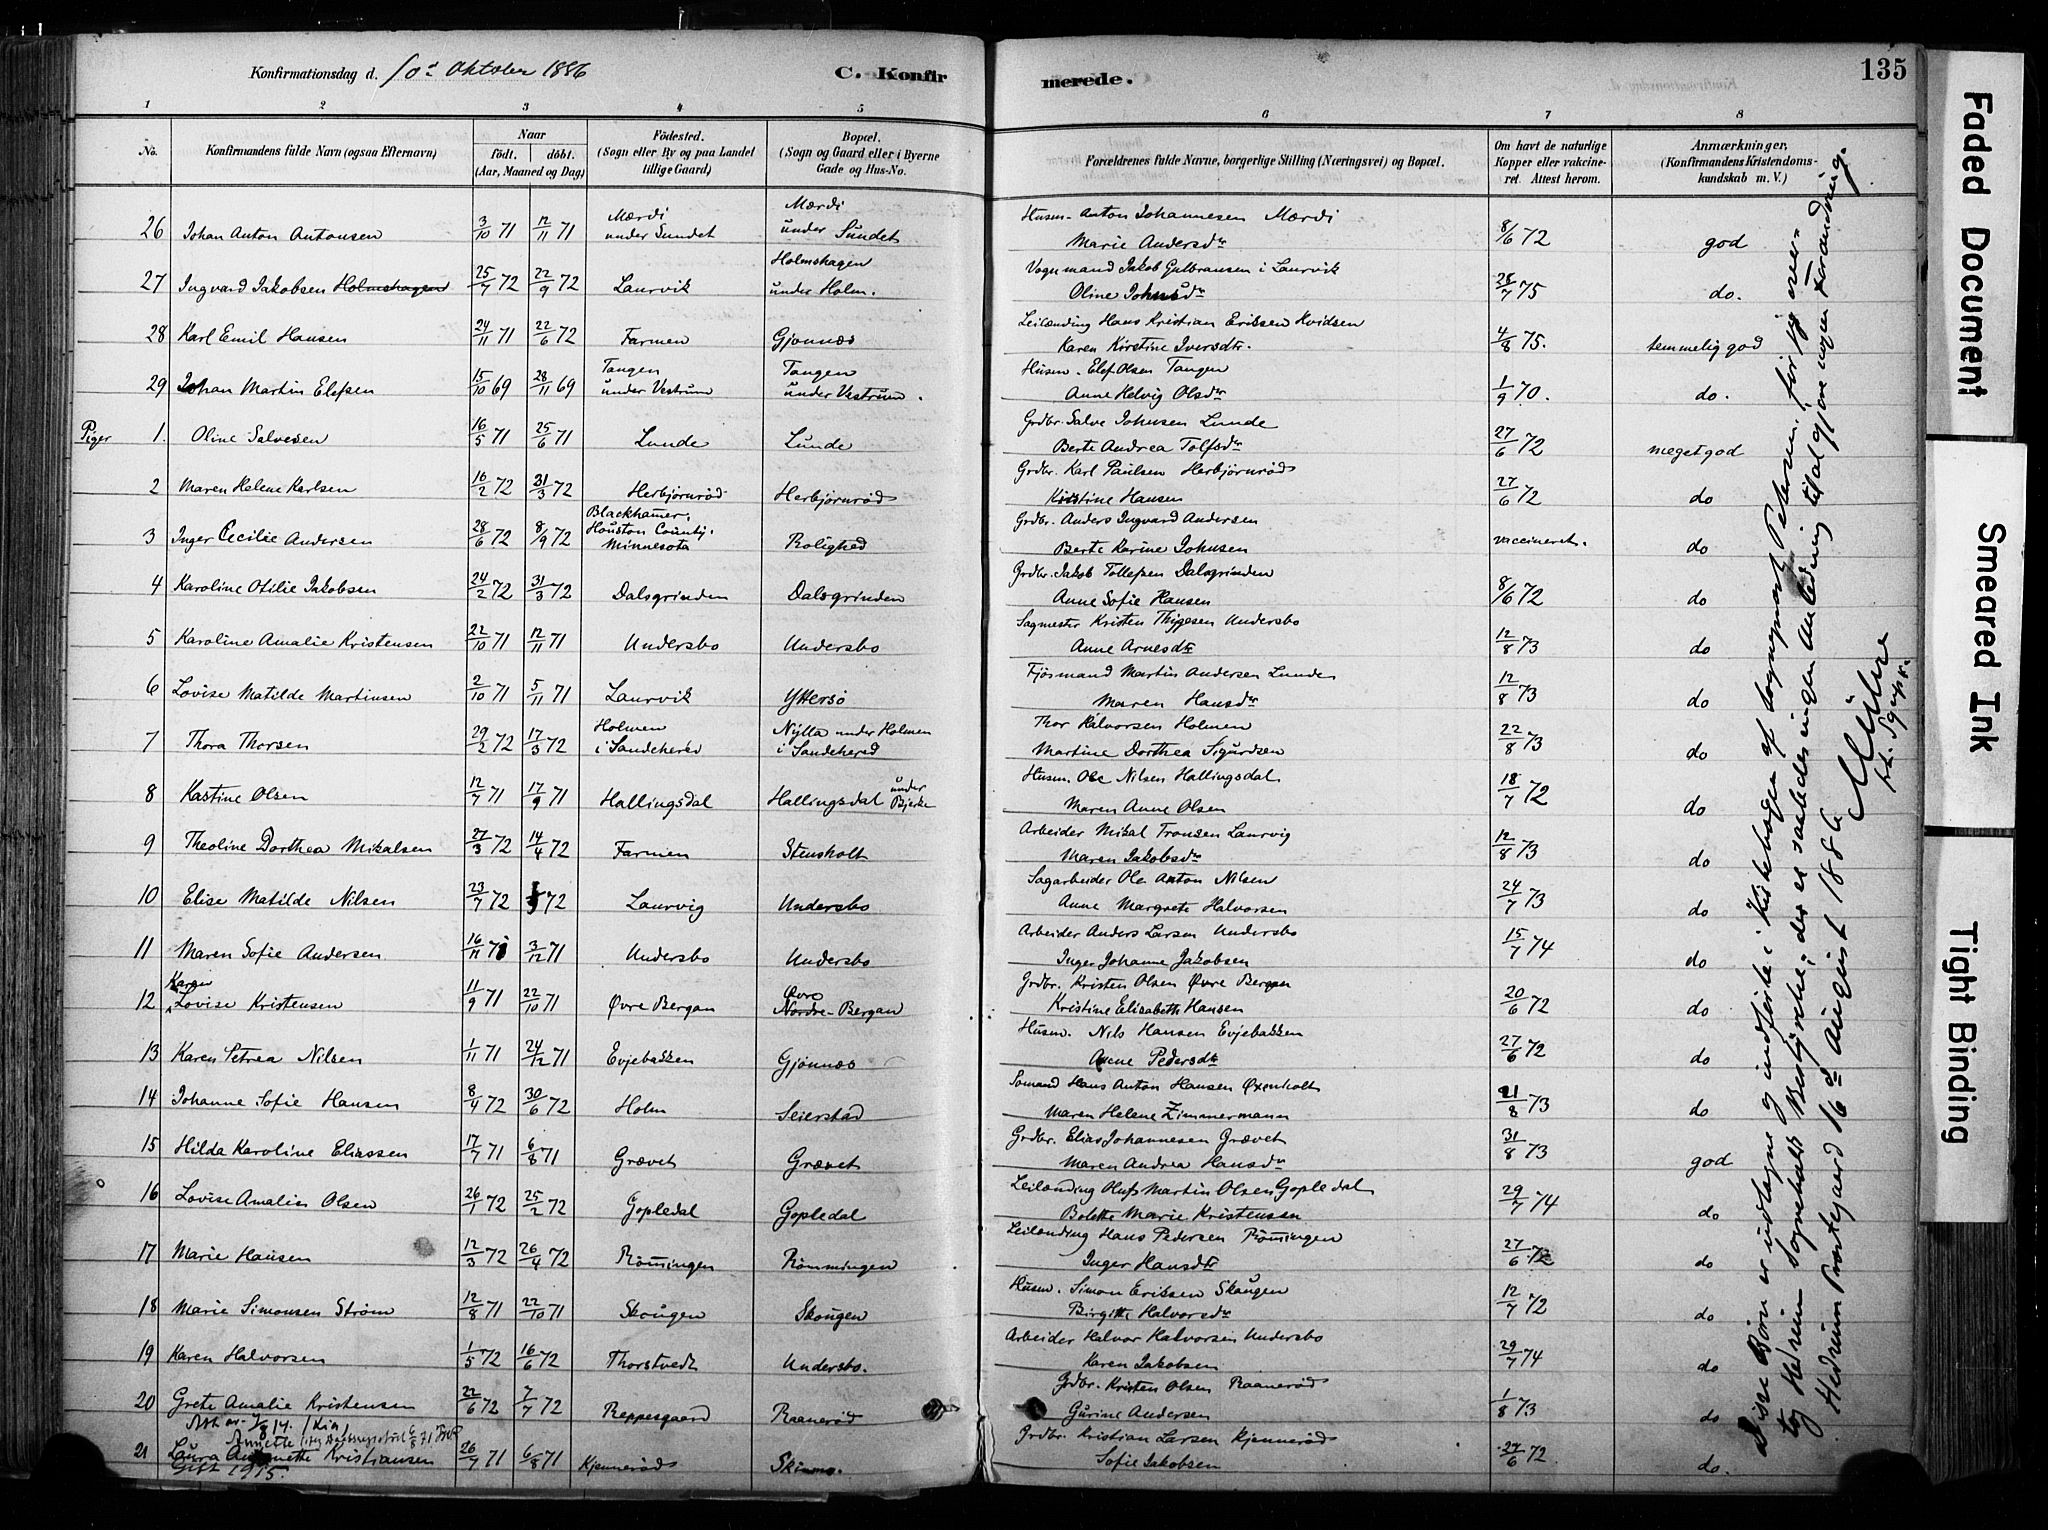 Konfirmationsdag d. 10d Oktober 1886
C. Konfirmerede.
135
1 2 3 4 5 6 7 8
No.
Konfirmandens fulde Navn (ogsaa Efternavn)
Naar
født. døbt.
(Aar, Maaned og Dag)
Födested.
(Sogn eller By og paa Landet
tillige Gaard)
Bopæl.
(Sogn og Gaard eller i Byerne
Gade og Hus-No.
Forældrenes fulde Navne, borgerlige Stilling (Næringsvei) og Bopæl.
Om havt de naturlige
Kopper eller vakcine-
ret. Attest herom.
Anmærkninger,
(Konfirmandens Kristendoms-
kundskab m. V.)
26 Johan Anton Antonsen 3/10 71 12/11 71 Mærdi under Sundet Mærdi under Sundet Husm. Anton Johannesen Mærdi
Marie Andersdr 8/6 72 god
27 Ingvard Jakobsen Holmshagen 25/7 72 22/9 72 Laurvik Holmshagen under Holm. Vognmand Jakob Gulbransen i Laurvik
Oline Johnsdr 28/7 75 do.
28 Karl Emil Hansen 24/11 71 22/6 72 Farmen Gjønnæs Leilænding Hans Kristian Eriksen Kvidsen
Karen Kirstine Iversdtr. 4/8 75. temmelig god
29 Johan Martin Elefsen 15/10 69 28/11 69 Tangen under Vestrum Tangen under Vestrum. Husm. Elef Olsen Tangen
Anne Helvig Olsdr 1/9 70. do.
Piger 1. Oline Salvesen 16/5 71 25/6 71 Lunde Lunde Grdbr. Salve Johnsen Lunde
Berte Andrea Tolfsdr 27/6 72 meget god
2 Maren Helene Karlsen 16/2 72 31/3 72 Herbjørnrød Herbjørnrød Grdbr. Karl Paulsen Herbjørnrød
Kirstine Hansen 27/6 72 do
3 Inger Cecilie Andersen 28/6 72 8/9 72 Blackhamer, Houston County, Minnesota Rolighed Grdbr. Anders Ingvard Andersen
Berte Karine Johnsen vaccineret. do
4 Karoline Otilie Jakobsen 24/2 72 31/3 72 Dalsgrinden Dalsgrinden Grdbr. Jakob Tollefsen Dalsgrinden
Anne Sofie Hansen 8/6 72 do
5 Karoline Amalie Kristensen 22/10 71 12/11 71 Undersbo Undersbo Sagmester Kristen Thygesen Undersbo
Anne Arnesdtr 12/8 73 do
6 Lovise Matilde Martinsen 2/10 71 5/11 71 Laurvik Yttersø Fjøsmand Martin Andersen Lunde
Maren Hansdr 12/8 73 do
7 Thora Thorsen 29/2 72 17/3 72 Holmen i Sandeherred Nylla under Holmen i Sandehered Thor Halvorsen Holmen
Martine Dorthea Sigurdsen 22/8 73 do
8 Kastine Olsen 12/7 71 17/9 71 Hallingsdal Hallingsdal under Bjerke Husm. Ole Nilsen Hallingsdal
Maren Anne Olsen 18/7 72 do
9 Theoline Dorthea Mikalsen 27/3 72 14/4 72 Farmen Stensholt Arbeider Mikal Tronsen Laurvig
Maren Jakobsdr 12/8 73 do
10 Elise Matilde Nilsen 23/7 72 72 Laurvig Undersbo Sagarbeider Ole Anton Nilsen
Anne Margrete Halvorsen 24/7 73 do
11 Maren Sofie Andersen 16/11 71 3/12 71 Undersbo Undersbo Arbeider Anders Larsen Undersbo
Inger Johanne Jakobsen 15/7 74 do
12 Karen Lovise Kristensen 11/9 71 22/10 71 Øvre Bergan Øvre Nordre-Bergan Grdbr. Kristen Olsen Øvre Bergan
Kristine Elisabeth Hansen 20/6 72 do
13 Karen Petrea Nilsen 1/11 71 24/12 71 Evjebakken Gjønnæs Husm. Nils Hansen Evjebakken
Anne Pedersdtr 27/6 72 do
14 Johanne Sofie Hansen 8/4 72 30/6 72 Holm Seierstad Sømand Hans Anton Hansen Øxenholt
Maren Helene Zimmermann 21/8 73 do
15 Hilda Karoline Eliassen 17/7 71 6/8 71 Grævet Grævet Grdbr. Elias Johannesen Grævet
Maren Andrea Hansdr 31/8 73 god
16 Lovise Amalie Olsen 26/1 72 25/2 72 Gopledal Gopledal Leilænding Oluf Martin Olsen Gopledal
Bolette Marie Kristensen 29/7 74 do
17 Marie Hansen 12/3 72 26/4 72 Rømingen Rømmingen Leilænding Hans Pedersen Rømingen
Inger Hansdtr 27/6 72 do
18 Marie Simonsen Strøm 12/8 71 22/10 71 Skougen Skougen Husm. Simon Eriksen Skaugen
Birgitte Halvorsdr 12/7 72 do
19 Karen Halvorsen 1/5 72 16/6 72 Thorstvedt Undersbo. Arbeider Halvor Halvorsen Undersbo
Karen Jakobsen 29/7 74 do
20 Grete Amalie Kristensen 22/6 72 7/7 72 Reppesgaard Raanerød Grdbr. Kristen Olsen Raanerød
Gurine Andersen 1/8 73 do
21 Laura Antonette Kristiansen 26/7 71 6/8 71 Kjennerød Grdbr. Kristian Larsen Kjennerød
Annette
Gift 1915.
Sofie Jakobsen 27/6 72. do.
Disse Børn er udtagne og indførte i Kirkebogen af Sogneprest Petersen, før jeg over-
tog Hedrum Sogneholds Bestyrelse; der er saaledes ingen Anledning til at gjøre nogen Forandring.
Hedrum Prestegaard 16d August 1886
Faded Document
Smeared Ink
Tight Binding